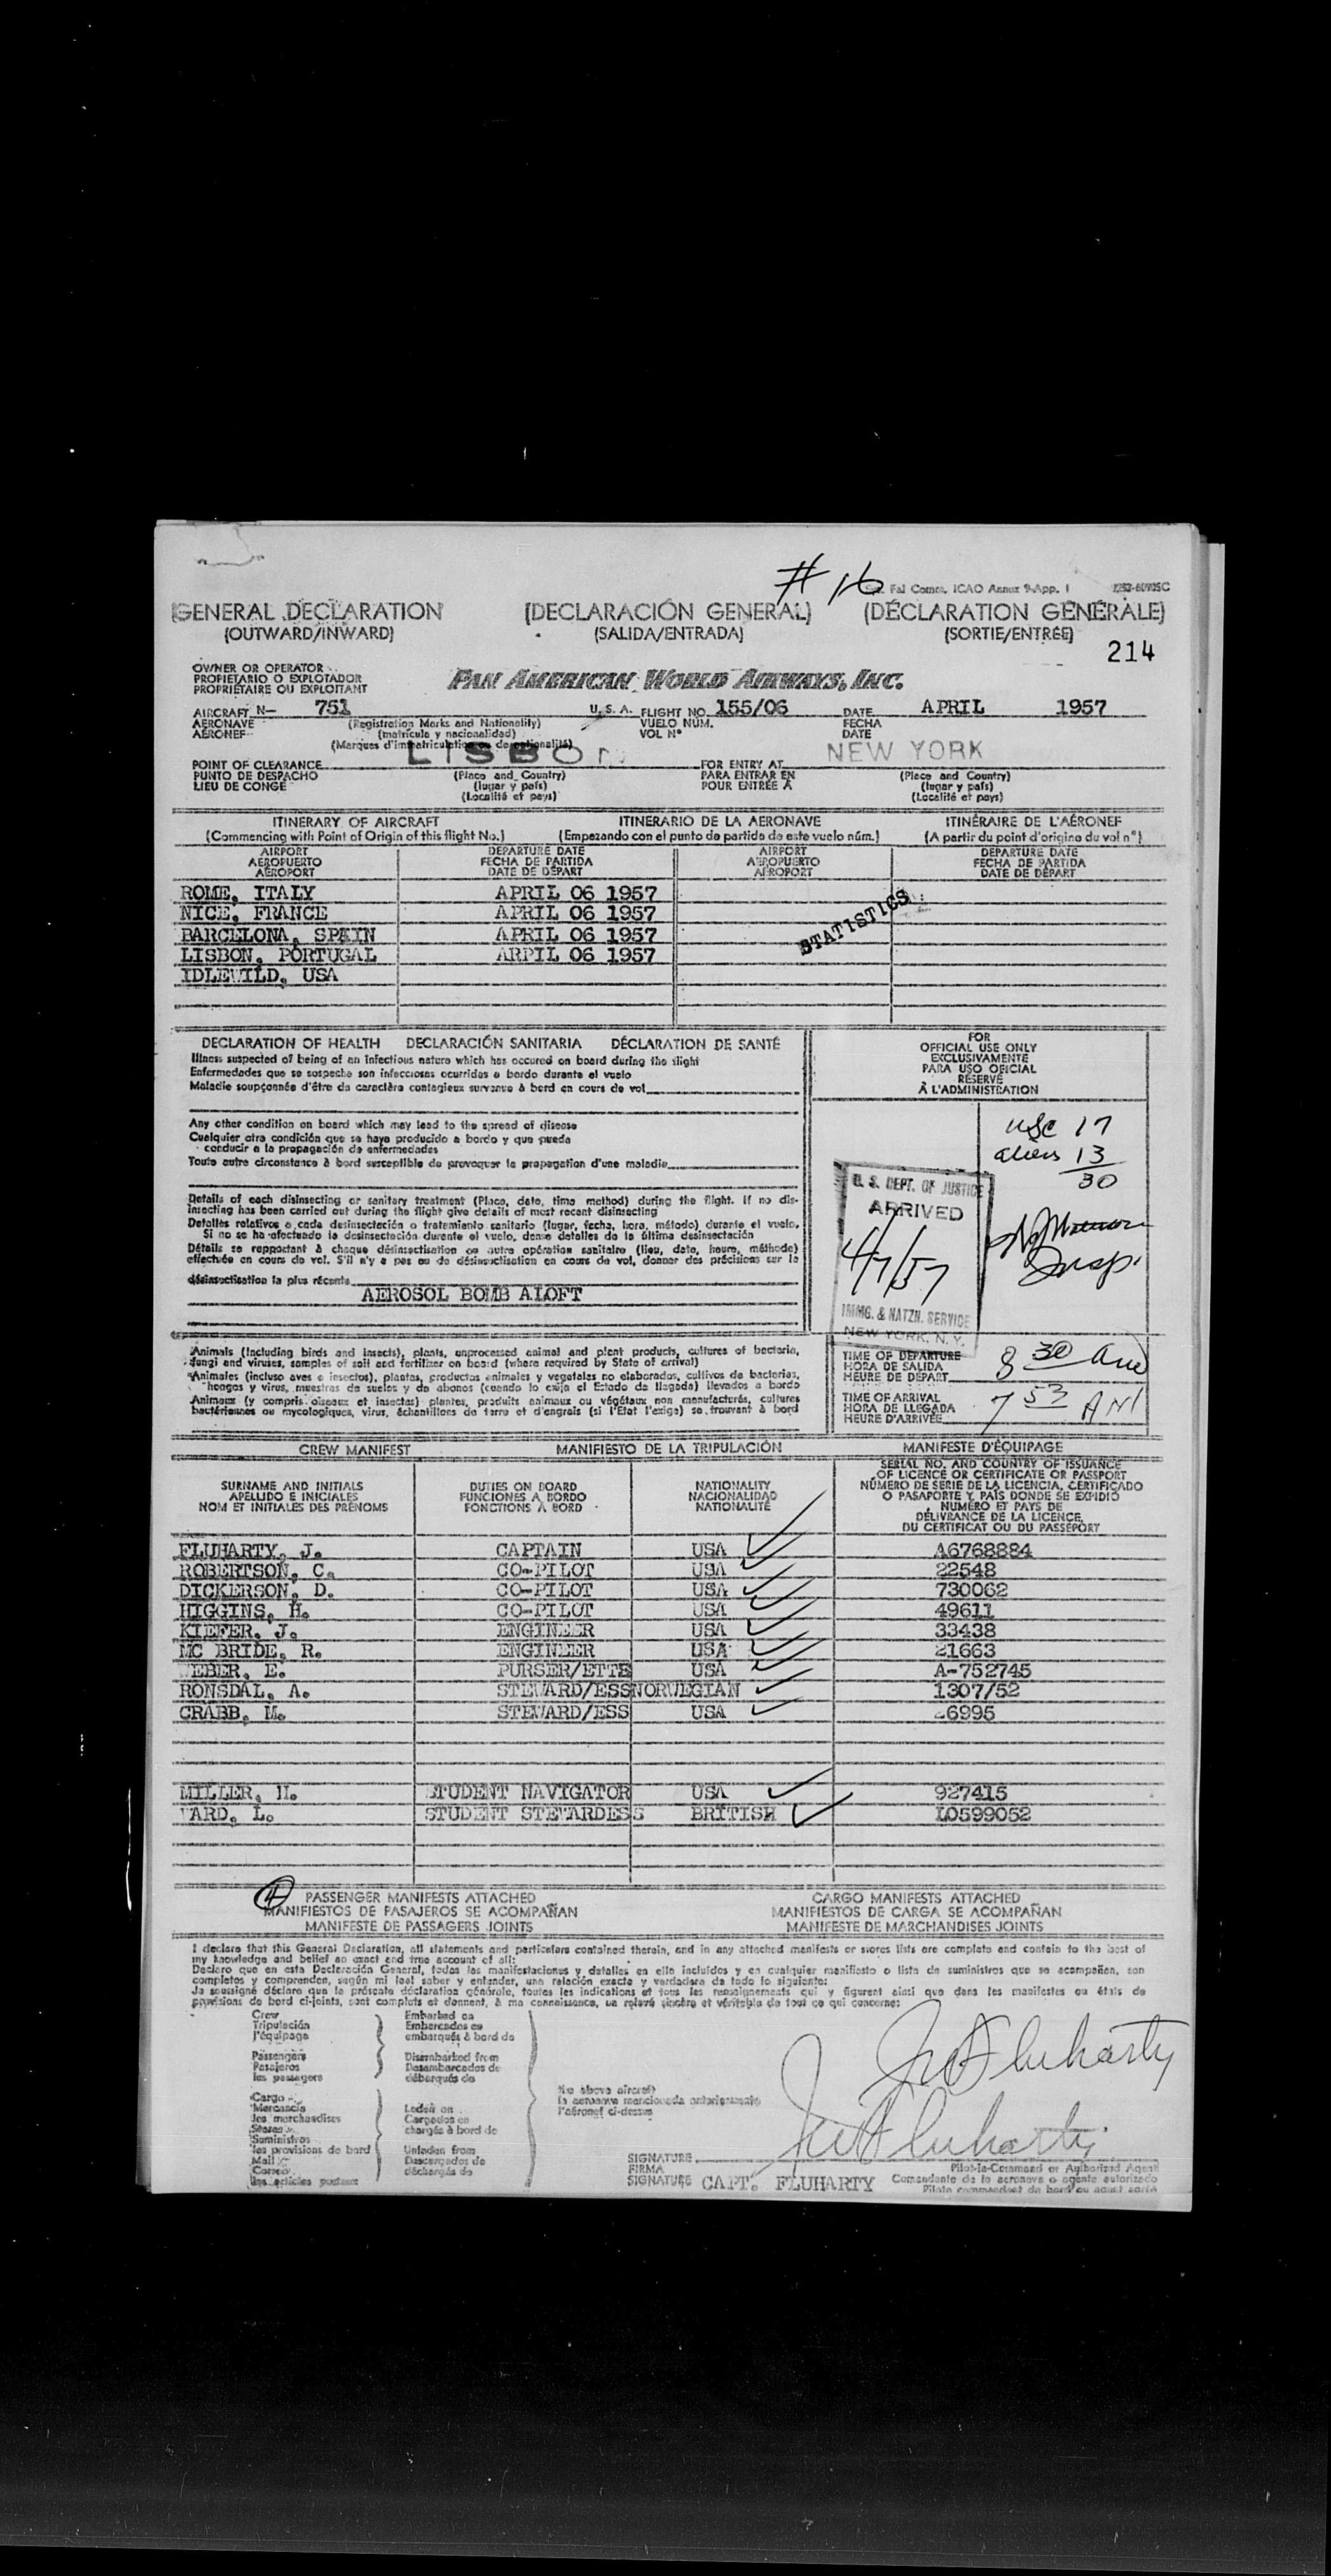 # 16
Fal Comm. ICAO Annex 9-App. 1
GENERAL DECLARATION (DECLARACIÓN GENERAL) (DÉCLARATION GÉNÉRALE)
(OUTWARD/INWARD) (SALIDA/ENTRADA) (SORTIE/ENTRÉE)
214
OWNER OR OPERATOR
PROPIETARIO O EXPLOTADOR
PROPRIÉTAIRE OU EXPLOITANT
PAN AMERICAN WORLD AIRWAYS, INC.
AIRCRAFT N- 751 U.S.A. FLIGHT NO. 155/06 DATE APRIL 1957
AERONAVE (Registration Marks and Nationality) VUELO NÚM. FECHA
AÉRONEF (matrícula y nacionalidad) VOL Nº DATE
(Marques d'immatriculation et de nationalité)
LISBON NEW YORK
POINT OF CLEARANCE FOR ENTRY AT
PUNTO DE DESPACHO (Place and Country) PARA ENTRAR EN (Place and Country)
LIEU DE CONGÉ (lugar y país) POUR ENTRÉE À (lugar y país)
(Localité et pays) (Localité et pays)
ITINERARY OF AIRCRAFT ITINERARIO DE LA AERONAVE ITINÉRAIRE DE L'AÉRONEF
(Commencing with Point of Origin of this flight No.) (Empezando con el punto de partida de este vuelo núm.) (A partir du point d'origine du vol nº)
AIRPORT DEPARTURE DATE AIRPORT DEPARTURE DATE
AEROPUERTO FECHA DE PARTIDA AEROPUERTO FECHA DE PARTIDA
AÉROPORT DATE DE DÉPART AÉROPORT DATE DE DÉPART
ROME, ITALY APRIL 06 1957
NICE, FRANCE APRIL 06 1957
BARCELONA, SPAIN APRIL 06 1957
LISBON, PORTUGAL ARPIL 06 1957
IDLEWILD, USA
STATISTICS
DECLARATION OF HEALTH DECLARACIÓN SANITARIA DÉCLARATION DE SANTÉ
Illness suspected of being of an infectious nature which has occured on board during the flight
Enfermedades que se sospeche son infecciosas ocurridas a bordo durante el vuelo
Maladie soupçonnée d'être de caractère contagieux survenue à bord en cours de vol
Any other condition on board which may lead to the spread of disease
Cualquier otra condición que se haya producido a bordo y que pueda
conducir a la propagación de enfermedades
Toute autre circonstance à bord susceptible de provoquer la propagation d'une maladie
Details of each disinsecting or sanitary treatment (Place, date, time method) during the flight. If no dis-
insecting has been carried out during the flight give details of most recent disinsecting
Detalles relativos a cada desinsectación o tratamiento sanitario (lugar, fecha, hora, método) durante el vuelo.
Si no se ha efectuado la desinsectación durante el vuelo, dense detalles de la última desinsectación
Détails se rapportant à chaque désinsectisation ou autre opération sanitaire (lieu, date, heure, méthode)
effectuée en cours de vol. S'il n'y a pas eu de désinsectisation en cours de vol, donner des précisions sur la
désinsectisation la plus récente
AEROSOL BOMB ALOFT
FOR
OFFICIAL USE ONLY
EXCLUSIVAMENTE
PARA USO OFICIAL
RÉSERVÉ
À L'ADMINISTRATION
USC 17
aliens 13
30
Insp.
U. S. DEPT. OF JUSTICE
ARRIVED
4/7/57
IMMG. & NATZN. SERVICE
NEW YORK, N.Y.
Animals (including birds and insects), plants, unprocessed animal and plant products, cultures of bacteria,
fungi and viruses, samples of soil and fertilizer on board (where required by State of arrival)
Animales (incluso aves e insectos), plantas, productos animales y vegetales no elaborados, cultivos de bacterias,
hongos y virus, muestras de suelos y de abonos (cuando lo exija el Estado de llegada) llevados a bordo
Animaux (y compris oiseaux et insectes) plantes, produits animaux ou végétaux non manufacturés, cultures
bactériennes ou mycologiques, virus, échantillons de terre et d'engrais (si l'Etat l'exige) se trouvant à bord
TIME OF DEPARTURE
HORA DE SALIDA
HEURE DE DÉPART 8 30
TIME OF ARRIVAL
HORA DE LLEGADA
HEURE D'ARRIVÉE 7 53 AM
CREW MANIFEST MANIFIESTO DE LA TRIPULACIÓN MANIFESTE D'ÉQUIPAGE
SURNAME AND INITIALS DUTIES ON BOARD NATIONALITY
APELLIDO E INICIALES FUNCIONES A BORDO NACIONALIDAD
NOM ET INITIALES DES PRÉNOMS FONCTIONS À BORD NATIONALITÉ
SERIAL NO. AND COUNTRY OF ISSUANCE
OF LICENCE OR CERTIFICATE OR PASSPORT
NÚMERO DE SERIE DE LA LICENCIA, CERTIFICADO
O PASAPORTE Y PAÍS DONDE SE EXPIDIÓ
NUMÉRO ET PAYS DE
DÉLIVRANCE DE LA LICENCE,
DU CERTIFICAT OU DU PASSEPORT
FLUHARTY, J. CAPTAIN USA A6768884
ROBERTSON, C. CO-PILOT USA 22548
DICKERSON, D. CO-PILOT USA 730062
HIGGINS, H. CO-PILOT USA 49611
KIEFER, J. ENGINEER USA 33438
MC BRIDE, R. ENGINEER USA 21663
WEBER, E. PURSER/ETTE USA A-752745
RONSDAL, A. STEWARD/ESS NORWEGIAN 1307/52
CRABB, M. STEWARD/ESS USA 6995
MILLER, H. STUDENT NAVIGATOR USA 927415
WARD, L. STUDENT STEWARDESS BRITISH L0599052
4 PASSENGER MANIFESTS ATTACHED CARGO MANIFESTS ATTACHED
MANIFIESTOS DE PASAJEROS SE ACOMPAÑAN MANIFIESTOS DE CARGA SE ACOMPAÑAN
MANIFESTE DE PASSAGERS JOINTS MANIFESTE DE MARCHANDISES JOINTS
I declare that this General Declaration, all statements and particulars contained therein, and in any attached manifests or stores lists are complete and contain to the best of
my knowledge and belief an exact and true account of all:
Declaro que en esta Declaración General, todas las manifestaciones y detalles en ella incluidos y en cualquier manifiesto o lista de suministros que se acompañen, son
completos y comprenden, según mi leal saber y entender, una relación exacta y verdadera de todo lo siguiente:
Je soussigné déclare que la présente déclaration générale, toutes les indications et tous les renseignements qui y figurent ainsi que dans les manifestes ou états de
provisions de bord ci-joints, sont complets et donnent, à ma connaissance, un relevé sincère et véritable de tout ce qui concerne:
Crew Embarked on
Tripulación Embarcados en
l'équipage embarqués à bord de
Passengers Disembarked from
Pasajeros Desembarcados de
les passagers débarqués de
Cargo
Mercancía Laden on
les marchandises Cargados en
Stores chargés à bord de
Suministros
les provisions de bord Unladen from
Mail Descargados de
Correo déchargés de
les articles postaux
the above aircraft
la aeronave mencionada anteriormente
l'aéronef ci-dessus
Fluharty
Fluharty
SIGNATURE
FIRMA
SIGNATURE CAPT. FLUHARTY
Pilot-in-Command or Authorized Agent
Comandante de la aeronave o agente autorizado
Pilote commandant de bord ou agent